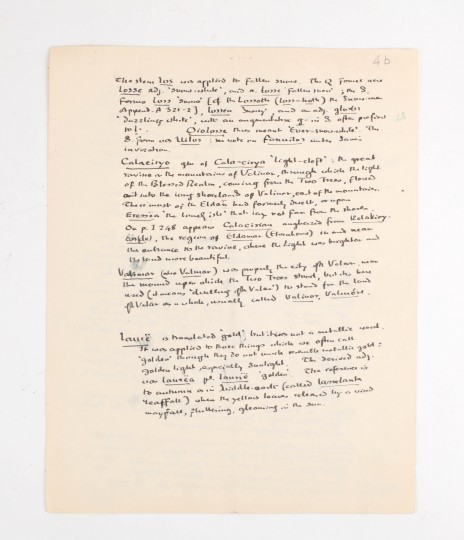 4b
The stem LOS was applied to fallen snow. The Q. forms were
losse adj. "snow-white", and n. losse 'fallen snow'; the S.
forms loss 'snow' [cf the Lossoth (loss-hoth) the Snow-men
Append. A 321-2] lossen 'snowy' and an adj. gloss
'dazzling white', with an augmentative g- in S often prefixed
to l-. Oiolosse thus meant "Ever-snow-white". The
S. form was Uilos: see note on Fanuilos under Sam's
invocation.
Calaciryo gen. of Cala-cirya "light-cleft": the great
ravine in the mountains of Valinor, through which the light
of the Blessed Realm, coming from the Two Trees, flowed
out into the long shoreland of Valinor, east of the mountains.
There most of the Eldar had formerly dwelt, or upon
Eressëa "the lonely isle" that lay not far from the shores.
On p. I 248 appears Calacirian anglicized from Kalakiry-
, the region of Eldamar (Elvenhome) in and near
the entrance to the ravine, where the Light was brighter and
the land more beautiful.
Valimar (also Valmar) was properly the city of the Valar, near
the mound upon which the Two Trees stood, but it is here
used (it means "dwelling of the Valar") to stand for the land
of the Valar as a whole, usually called Valinor, Valinóre.
Laurë is translated "gold", but it was not a metallic word.
It was applied to those things which we often call
"golden" though they do not much resemble metallic gold:
golden light, especially sunlight. The derived adj.
was laurea pl. laurië "golden". The reference is
to autumn as in Middle-earth (called lasselanta
'leaffall') when the yellow leaves released by a wind
may fall, fluttering, gleaming in the sun.